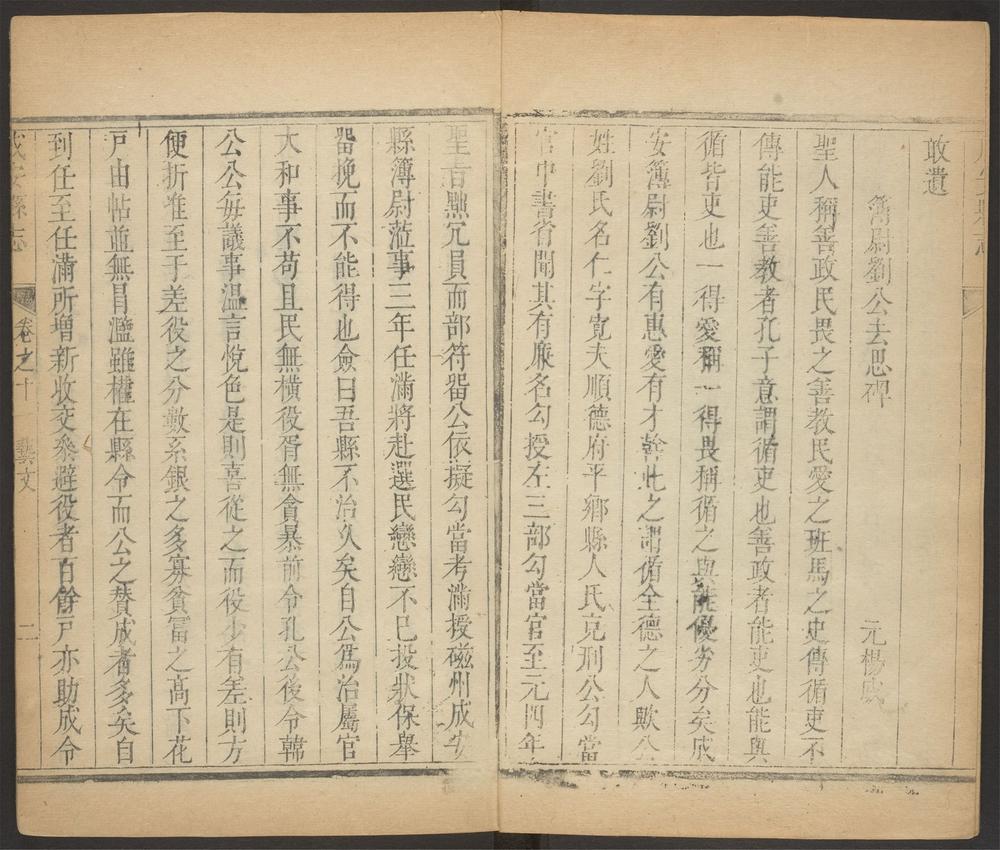 敢遺
簿尉劉公去思碑 元楊威
聖人稱善政民畏之善教民愛之班馬之史傳循吏不
傳能吏善教者孔子意謂循吏也善政者能吏也能與
循皆吏也一得愛稱一得畏稱循之與能優劣分矣成
安簿尉劉公有惠愛有才幹此之謂循全德之人歟公
姓劉氏名仁字寬夫順德府平鄉縣人氏克刑公勾當
官中書省聞其有廉名勾授左三部勾當官至元四年
聖旨黜冗員而部符畱公依擬勾當考滿授磁州成安
縣簿尉蒞事三年任滿將赴選民戀戀不已投狀保舉
畱挽而不能得也僉曰吾縣不治久矣自公為治屬官
大和事不苟且民無橫役胥無貪暴前令孔公後令韓
公公每議事溫言悅色是則喜從之而役少有差則方
便折准至于差役之分數系銀之多寡貧富之高下花
戸由帖並無冒濫雖權在縣令而公之贊成者多矣自
到任至任滿所增新收交叅避役者百餘戸亦助成令
成安縣志 卷之十 藝文 二